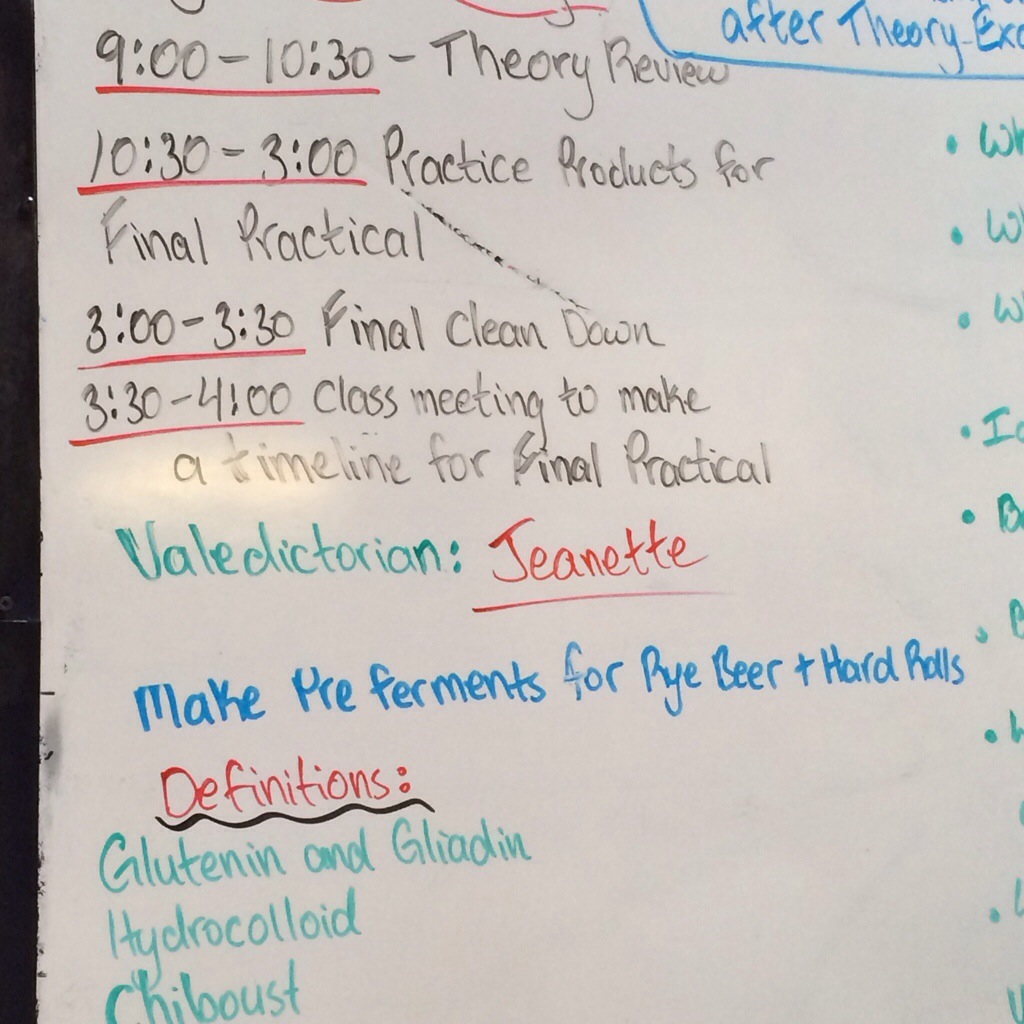 after Theory-Exa
9:00-10:30 - Theory Review
10:30-3:00 Practice Products for
Final Practical
3:00-3:30 Final Clean Down
3:30-4:00 Class meeting to make
a timeline for Final Practical
Valedictorian: Jeanette
Make Pre ferments for Rye Beer + Hard Rolls
Definitions:
Glutenin and Gliadin
Hydrocolloid
Chiboust